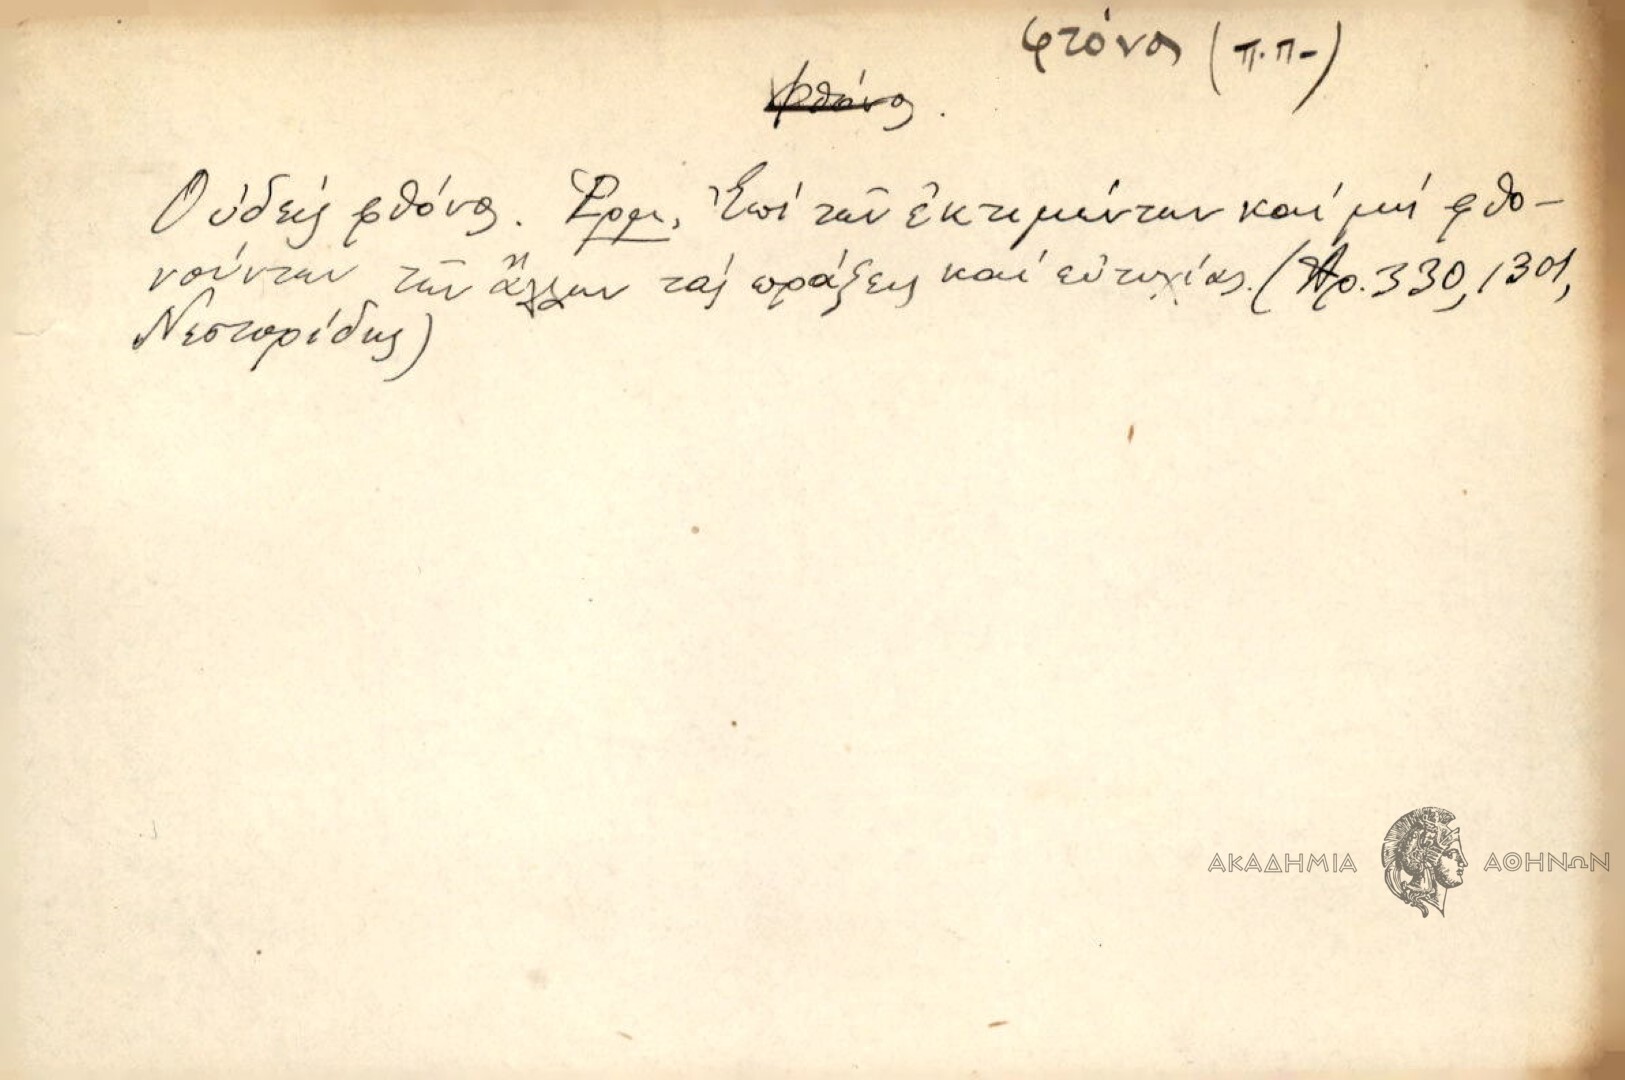 φτόνος (π.π-)
φθόνος.
Οὐδεὶς φθόνος. Ἑρμ. Ἐπὶ τῶν ἐκτιμώντων καὶ μὴ φθο-
νούντων τῶν ἄλλων τὰς πράξεις καὶ εὐτυχίας. (Ἀρ. 330, 1301,
Νεστορίδης)
ΑΚΑΔΗΜΙΑ ΑΘΗΝΩΝ